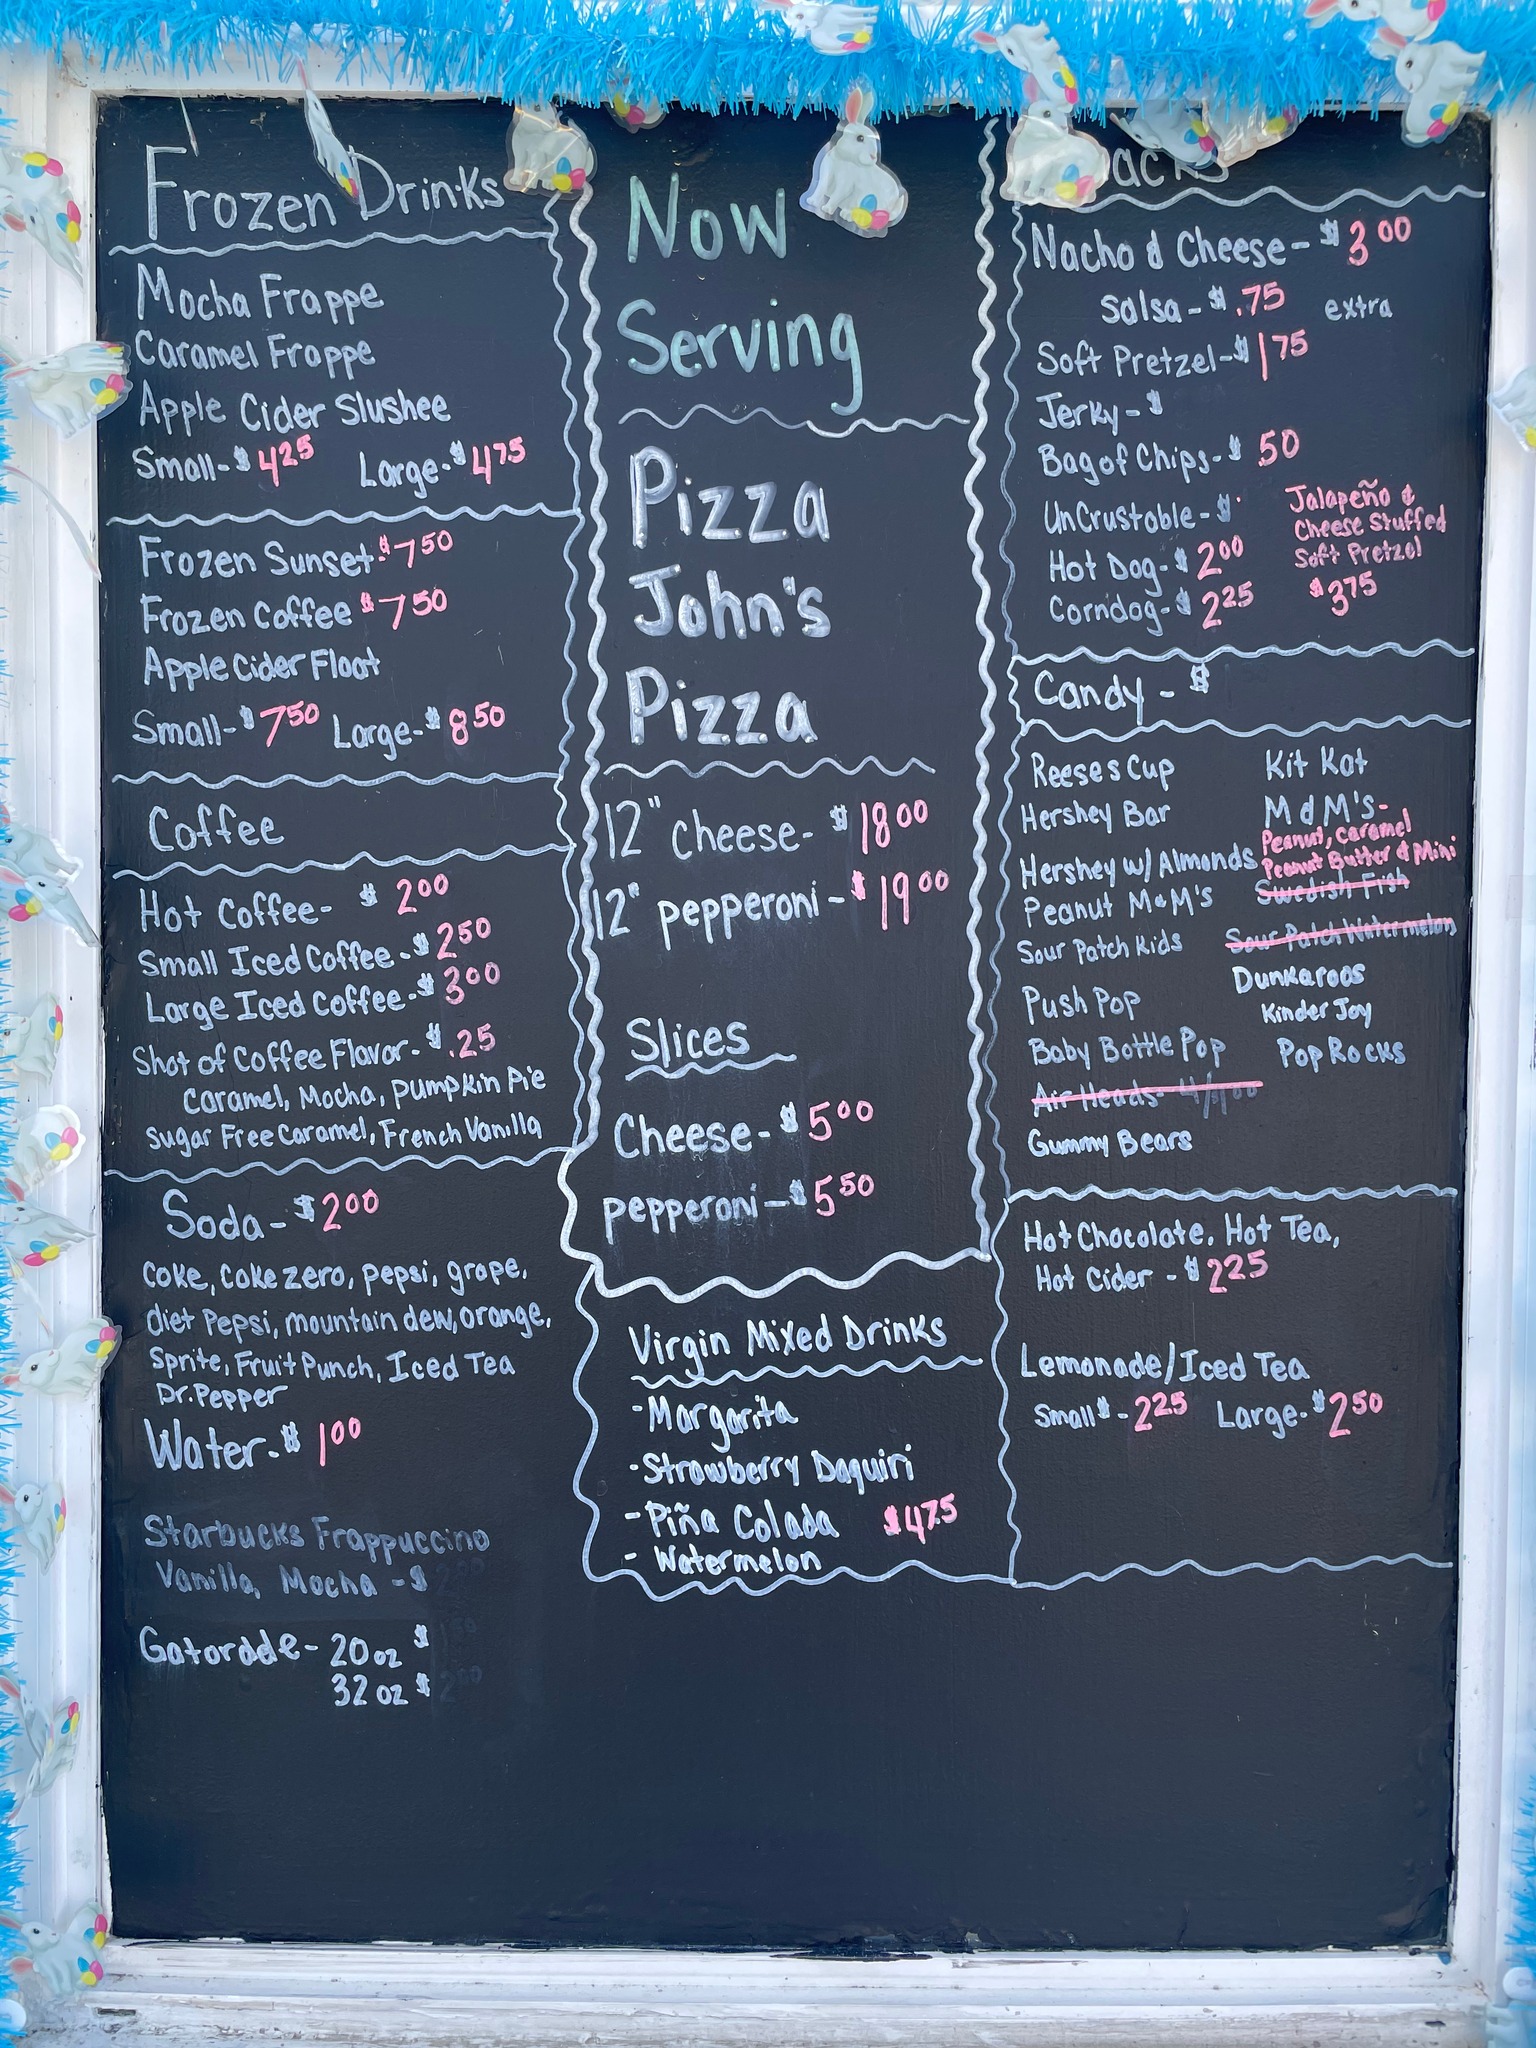 Frozen Drinks
Mocha Frappe
Caramel Frappe
Apple Cider Slushee
Small-$4.25 Large-$475
Frozen Sunset-$750
Frozen Coffee $750
Apple Cider Float
Small-$750 Large-$850
Coffee
Hot Coffee- $200
Small Iced Coffee-$250
Large Iced Coffee-$300
Shot of Coffee Flavor-$.25
Caramel, Mocha, Pumpkin Pie
Sugar Free Caramel, French Vanilla
Soda-$200
Coke, Coke zero, pepsi, grape,
diet Pepsi, mountain dew, orange,
Sprite, Fruit Punch, Iced Tea
Dr. Pepper
Water-$100
Starbucks Frappuccino
Vanilla, Mocha -$
Gatorade- 20oz $
32oz $
Now
Serving
Pizza
John's
Pizza
12" cheese- $1800
12" pepperoni-$1900
Slices
Cheese-$500
pepperoni-$550
Virgin Mixed Drinks
-Margarita
-Strawberry Daquiri
-Piña Colada $475
-Watermelon
Nacho & Cheese-$300
Salsa-$.75 extra
Soft Pretzel-$175
Jerky-$
Bag of Chips-$.50
UnCrustable-$
Hot Dog-$200
Corndog-$225
Jalapeño &
Cheese Stuffed
Soft Pretzel
$375
Candy-$
Reeses Cup
Hershey Bar
Hershey w/ Almonds
Peanut M&M's
Sour Patch Kids
Push Pop
Baby Bottle Pop
Air Heads-4/100
Gummy Bears
Kit Kat
M&M's-
Peanut, Caramel
Peanut Butter & Mini
Swedish Fish
Sour Patch Watermelon
Dunkaroos
Kinder Joy
Pop Rocks
Hot Chocolate, Hot Tea,
Hot Cider-$225
Lemonade/Iced Tea
Small$-225 Large-$250